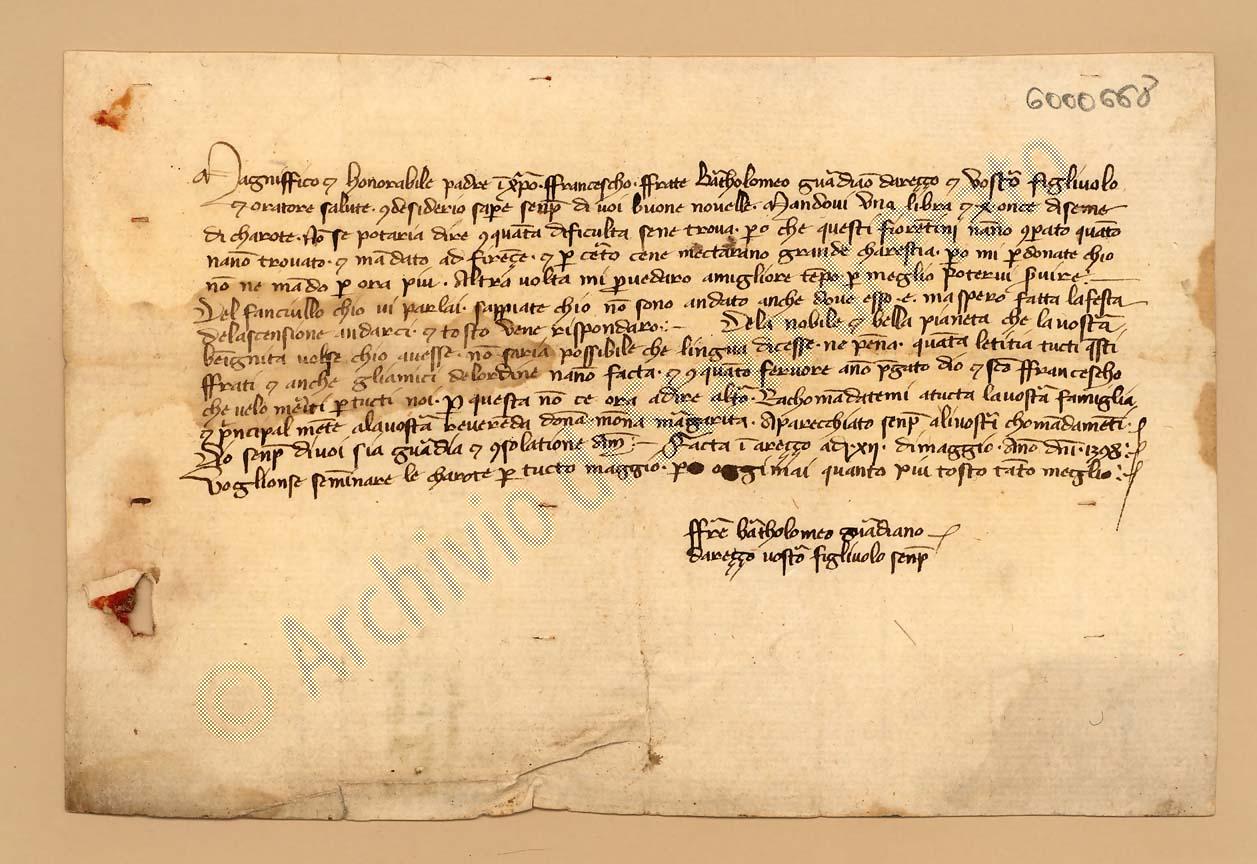 6000668
Magniffico et honorabile padre i xpo ffrancescho ffrate Bartholomeo guardiano darezzo et vostro figlivolo
et oratore salute 9desiderio sape senp di voi buone novelle Mandovi una libra et x once diseme
di charote No se potaria dire 9quata dificulta sene trova po che questi fioretini nano 9parato quato
nano trovato et madato ad firenze et p certo cene mectarano grande charestia po mi pdonate chio
no ne mado p ora piu Altra volta mi pvedaro amigliore tepo p meglio potervi svire
Del fanciullo chio vi parlai sappiate chio no sono andato anche dove esso e ma spero fatta lafesta
delascensione andarci et tosto vene rispondaro Dela nobile et bella pianeta che lavostra
benignita volse chio avesse no saria possibile che lingua dicesse ne pena quata letitia tucti qsti
ffrati et anche gliamici delordine nano facta et 9quato fervore ano pgato dio et sco ffrancescho
che velo meriti p tucti noi P questa no ce ora adire altro Rachomadatemi atucta lavostra famiglia
et principal mete alavostra reverenda dona mona margarita Aparecchiato senp alivostri chomadameti
Dio senp divoi sia guardia et 9solatione Am Facta i arezzo adi xii di maggio Ano dni 1398
Voglionse seminare le charote p tucto maggio po oggimai quanto piu tosto tato meglio
ffre bartholomeo guardiano
darezzo vostro figlivolo senp
© Archivio di